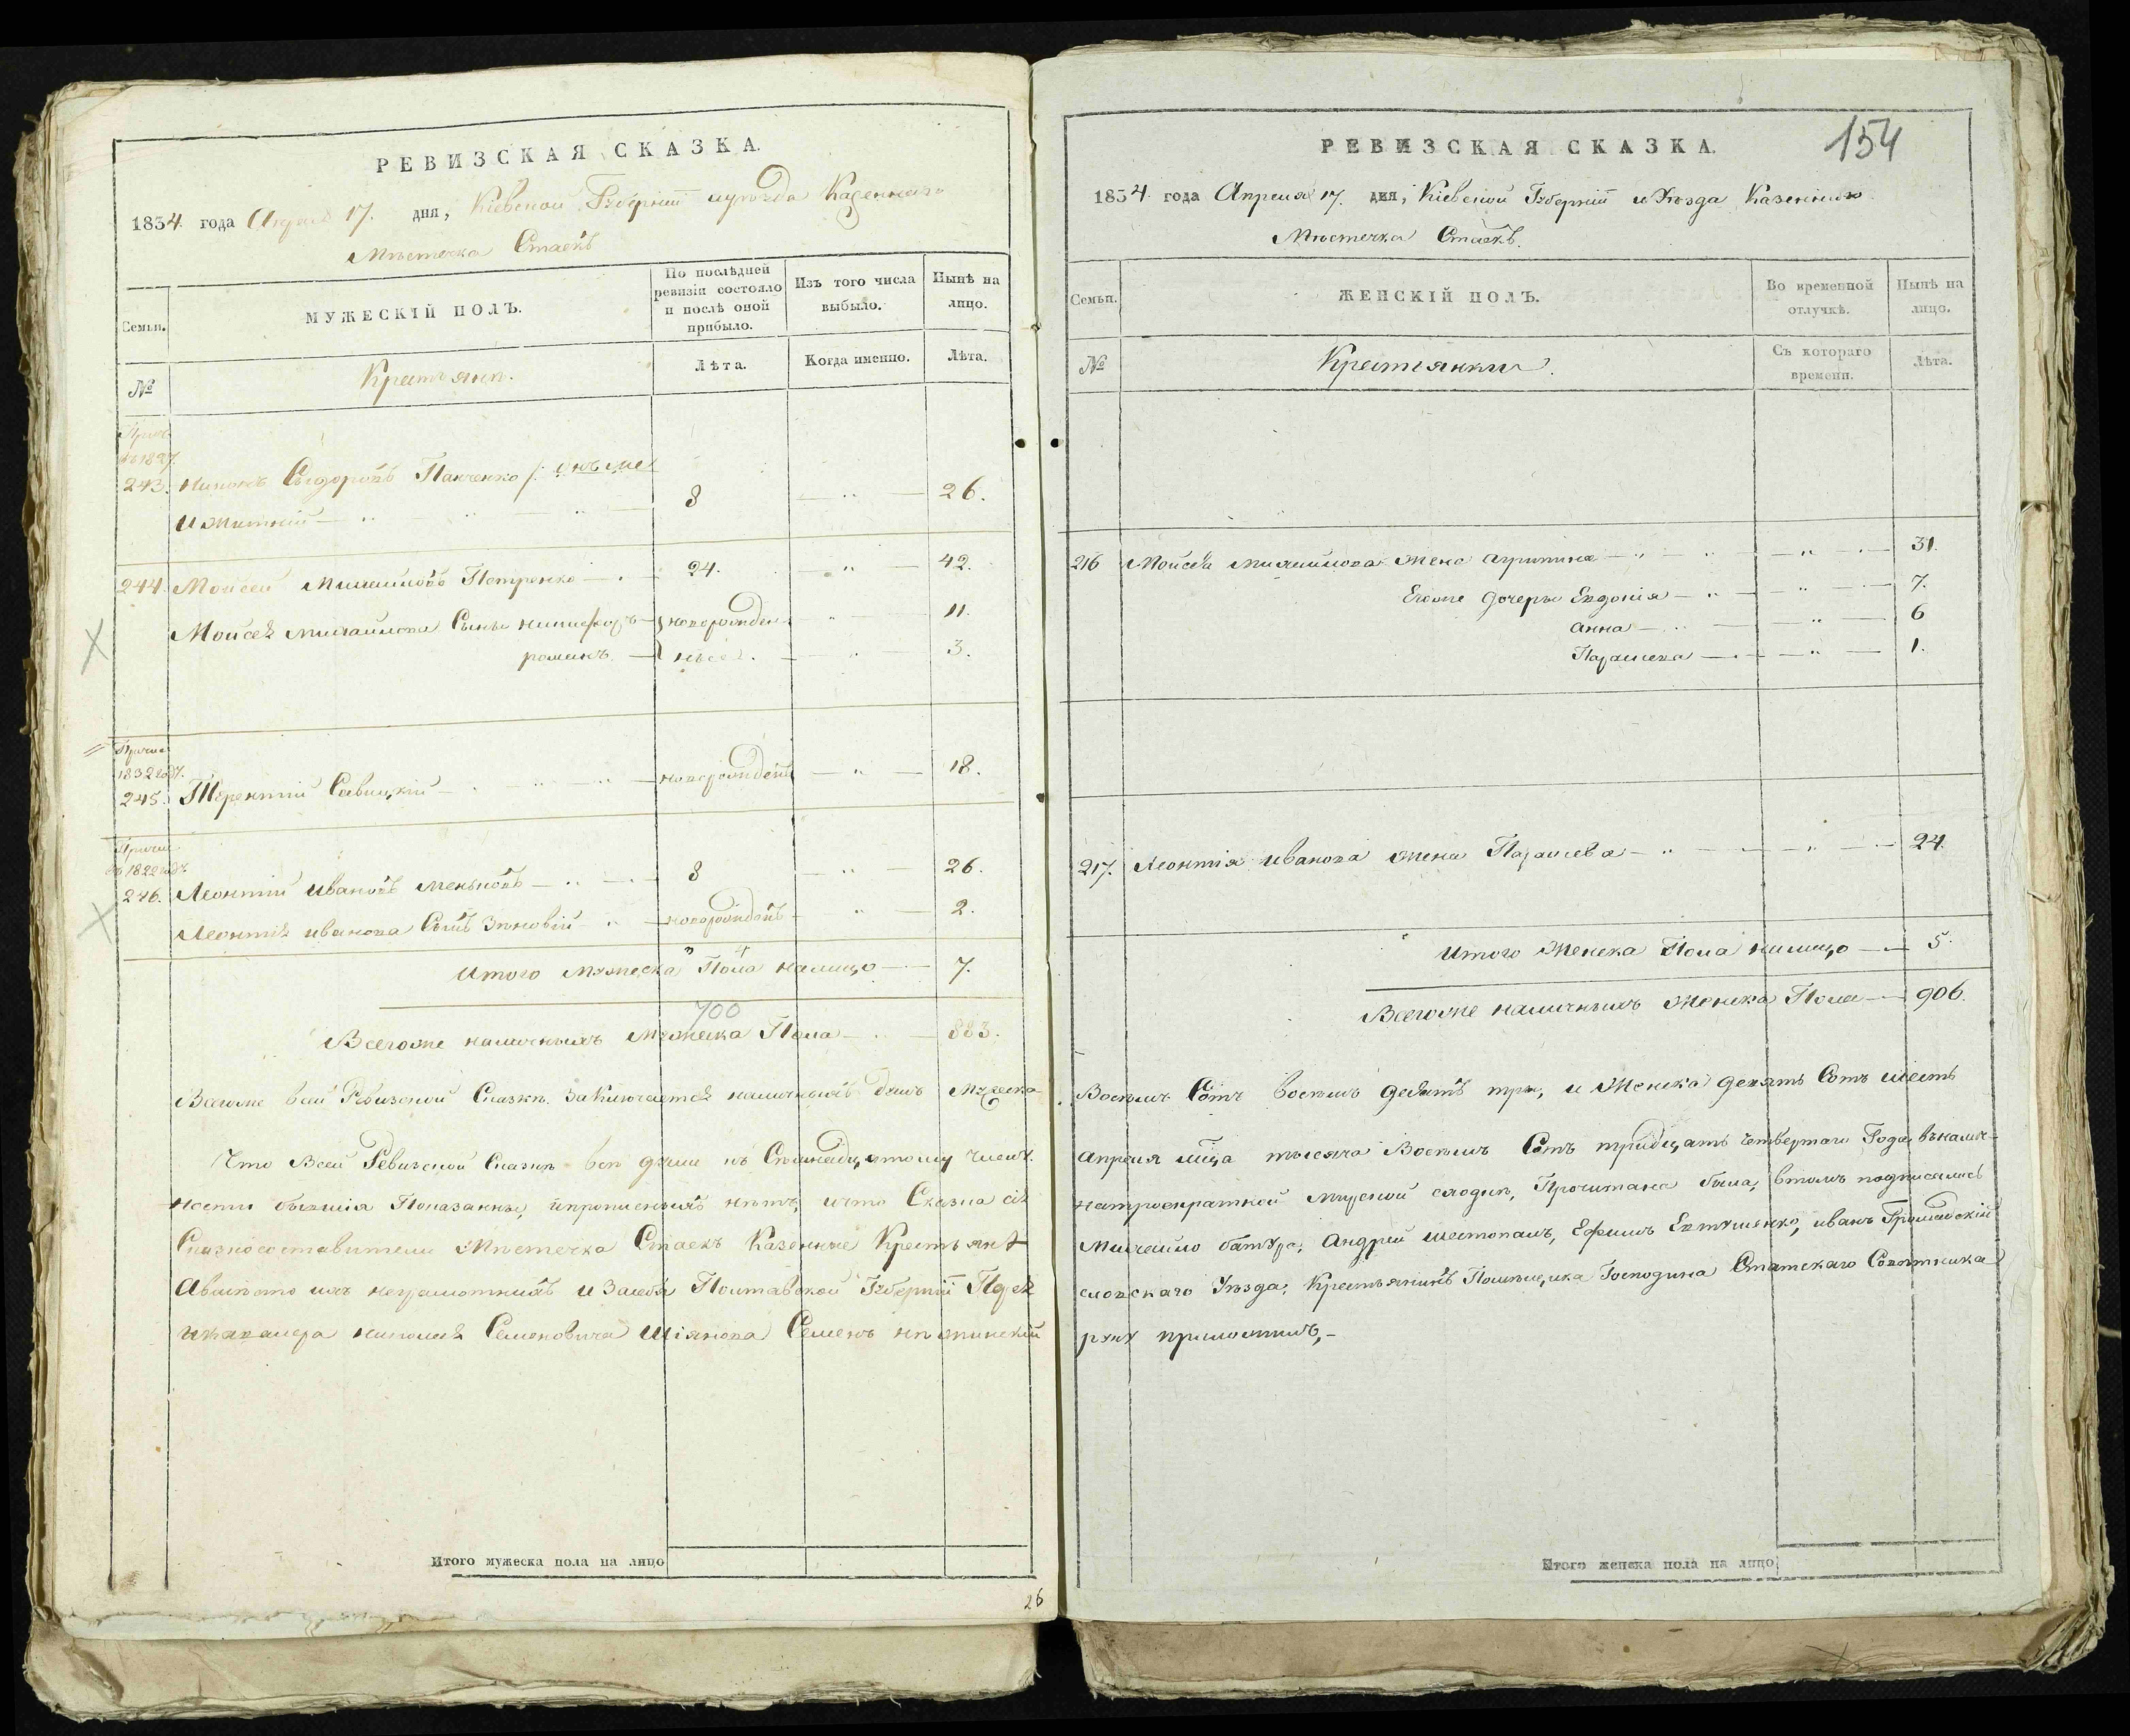 РЕВИЗСКАЯ СКАЗКА.
1834 года Апреля 17. дня, Кіевской Губерніи и уѣзда Казеннаго
Мѣстечка Стаекъ
Семьи.
МУЖЕСКІЙ ПОЛЪ.
По послѣдней ревизіи состояло и послѣ оной прибыло.
Изъ того числа выбыло.
Нынѣ на лицо.
№
Крестьяне.
Лѣта.
Когда именно.
Лѣта.
Прич.
въ 1827
243. Сыдоровъ Панченко
8 26.
244. Моисей Михайловъ Петренко 24. 42.
Моисея Михайлова Сыны Никифоръ новорожден- 11.
романъ ныя. 3.
Причис
1832 году.
245. Терентий Савицкій новорожденъ 18.
Причис
въ 1822 году
246. Леонтий Ивановъ 8 26.
Леонтія иванова Сынъ Зиновій новорожденъ 2.
4
Итого Мужеска Пола налицо 7.
700
Всегоже наличныхъ Мужеска Пола 883.
Всегоже всей Ревизской Сказки Заключается наличныхъ душъ Мужеска
Что Всей Ревизской Сказки все души къ Семнадцатому Числу
ности бывшія Показанны, и прописныхъ нѣтъ, и что Сказка сія
Сказкосоставители Мѣстечка Стаекъ Казенные Крестьяне
А вместо ихъ неграмотныхъ и За себя Полтавской Губерніи
Семеновича Семенъ
Итого мужеска пола на лицо
26
154
РЕВИЗСКАЯ СКАЗКА.
1834 года Апреля 17. дня, Кіевской Губерніи и Уѣзда Казеннаго
Мѣстечка Стаекъ.
Семьи.
ЖЕНСКІЙ ПОЛЪ.
Во временной отлучкѣ.
Нынѣ на лицо.
№
Крестянки.
Съ котораго времени.
Лѣта.
216 Моисея Михайлова Жена Агрипина 31.
Егоже Дочеры Евдокія 7.
Анна 6
Параскева 1.
217. Леонтія Иванова жена Параскева 24.
Итого Женска Пола налицо 5.
Всегоже наличныхъ Женска Пола 906.
Восемъ Сотъ восемъ десятъ три, и Женска девять Сотъ шесть
Апреля мца тысяча Восемъ Сотъ тридцать четвертаго Года въ налич-
на троекратной мирской сходки, Прочитана была, в томъ подписались
Михайло батура, Андрей шестопалъ, Ефимъ Евтушенко, иванъ Громадскій
Уѣзда, Крестьянинъ Помѣщика Господина Статскаго Советника
руку приложилъ,-
Итого женска пола на лицо